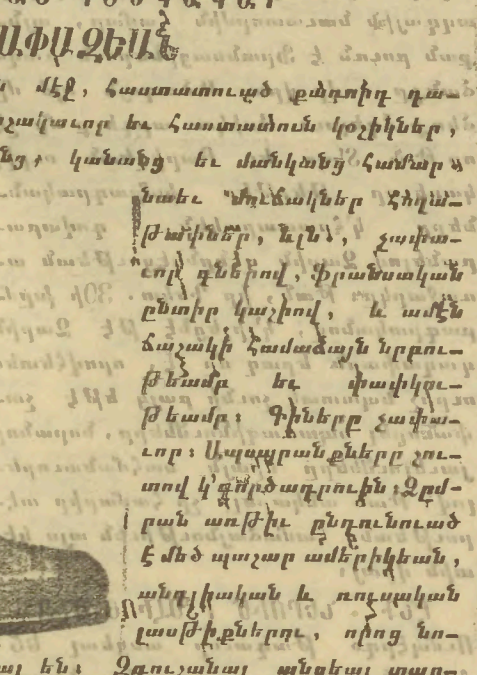 ԱՓԱԶԵԱՆ
մէջ, հաստատուած քանոիդ դա–
շակաւոր եւ հաստատուն կօշիկներ,
կանանց եւ մանկանց համար »
նաեւ մուճակներ հողա–
թափներ, եւլն., չափա–
ւոր գներով, Ֆրանսական
ընտիր կաշիով, և ամէն
ճաշակի համաձայն նրբու–
թեամբ եւ փափկու–
թեամբ։ Գիները չափա–
ւոր։ Ապսպրանքները շու–
տով կ՚գործադրուին։ Ձըմ–
րան առթիւ ընդունուած
է մեծ պաշար ամերիկեան,
անգլիական և ռուսական
լասթիքներու, որոց նո–
են։ Զգուշանալ անցեալ տար–